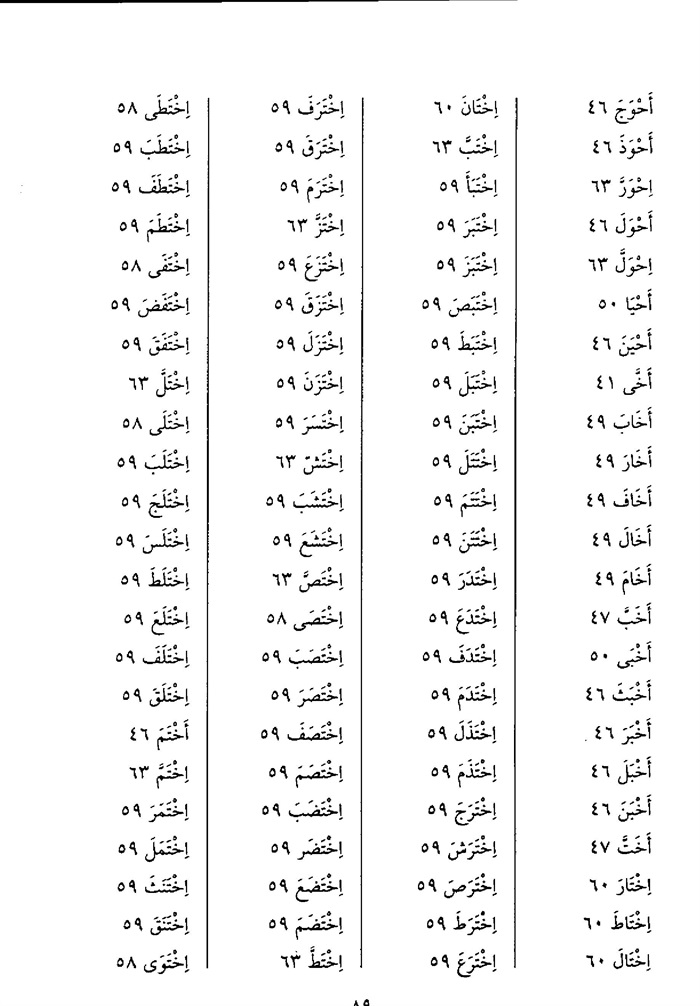 أَحْوَجَ ٤٦
أَحْوَذَ ٤٦
اِحْوَرَّ ٦٣
أَحْوَلَ ٤٦
اِحْوَلَّ ٦٣
أَحْيَا ٥٠
أَحْيَنَ ٤٦
أَخَّى ٤١
أَخَابَ ٤٩
أَخَارَ ٤٩
أَخَافَ ٤٩
أَخَالَ ٤٩
أَخَامَ ٤٩
أَخَبَّ ٤٧
أَخْبَى ٥٠
أَخْبَثَ ٤٦
أَخْبَرَ ٤٦
أَخْبَلَ ٤٦
أَخْبَنَ ٤٦
أَخَتَّ ٤٧
اِخْتَارَ ٦٠
اِخْتَاطَ ٦٠
اِخْتَالَ ٦٠
اِخْتَانَ ٦٠
اِخْتَبَّ ٦٣
اِخْتَبَأَ ٥٩
اِخْتَبَرَ ٥٩
اِخْتَبَزَ ٥٩
اِخْتَبَصَ ٥٩
اِخْتَبَطَ ٥٩
اِخْتَبَلَ ٥٩
اِخْتَبَنَ ٥٩
اِخْتَتَلَ ٥٩
اِخْتَتَمَ ٥٩
اِخْتَتَنَ ٥٩
اِخْتَدَرَ ٥٩
اِخْتَدَعَ ٥٩
اِخْتَدَفَ ٥٩
اِخْتَدَمَ ٥٩
اِخْتَذَلَ ٥٩
اِخْتَذَمَ ٥٩
اِخْتَرَجَ ٥٩
اِخْتَرَشَ ٥٩
اِخْتَرَصَ ٥٩
اِخْتَرَطَ ٥٩
اِخْتَرَعَ ٥٩
اِخْتَرَفَ ٥٩
اِخْتَرَقَ ٥٩
اِخْتَرَمَ ٥٩
اِخْتَزَّ ٦٣
اِخْتَزَعَ ٥٩
اِخْتَزَقَ ٥٩
اِخْتَزَلَ ٥٩
اِخْتَزَنَ ٥٩
اِخْتَسَرَ ٥٩
اِخْتَشّ ٦٣
اِخْتَشَبَ ٥٩
اِخْتَشَعَ ٥٩
اِخْتَصَّ ٦٣
اِخْتَصَى ٥٨
اِخْتَصَبَ ٥٩
اِخْتَصَرَ ٥٩
اِخْتَصَفَ ٥٩
اِخْتَصَمَ ٥٩
اِخْتَضَبَ ٥٩
اِخْتَضَر ٥٩
اِخْتَضَعَ ٥٩
اِخْتَضَمَ ٥٩
اِخْتَطَّ ٦٣
اِخْتَطَى ٥٨
اِخْتَطَبَ ٥٩
اِخْتَطَفَ ٥٩
اِخْتَطَمَ ٥٩
اِخْتَفَى ٥٨
اِخْتَفَضَ ٥٩
اِخْتَفَقَ ٥٩
اِخْتَلَّ ٦٣
اِخْتَلَى ٥٨
اِخْتَلَبَ ٥٩
اِخْتَلَجَ ٥٩
اِخْتَلَسَ ٥٩
اِخْتَلَطَ ٥٩
اِخْتَلَعَ ٥٩
اِخْتَلَفَ ٥٩
اِخْتَلَقَ ٥٩
أَخْتَمَ ٤٦
اِخْتَمَّ ٦٣
اِخْتَمَرَ ٥٩
اِخْتَمَلَ ٥٩
اِخْتَنَثَ ٥٩
اِخْتَنَقَ ٥٩
اِخْتَوَى ٥٨
٨٩